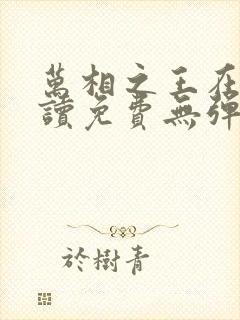 萬相之王在
讀免費無彈
於樹青